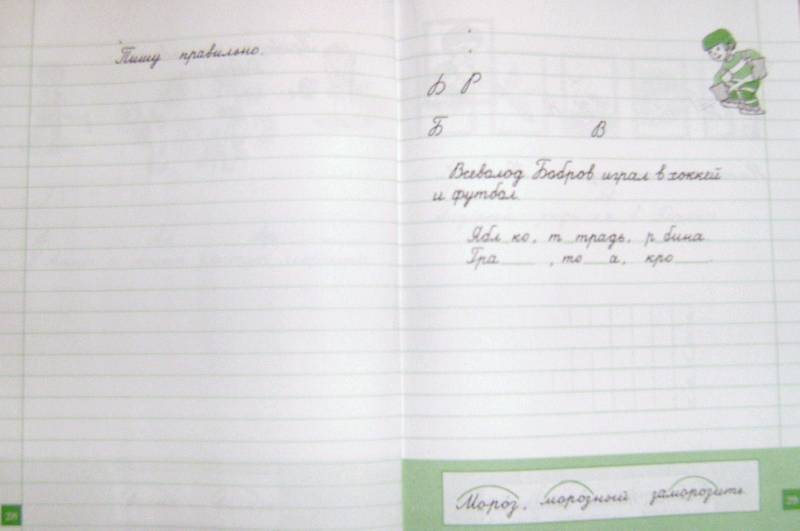 Пишу правильно.
Б Р
Б В
Всеволод Бобров играл в хоккей
и футбол.
Ябл ко, т традь, р бина
Гра , то а, кро .
Мороз, морозный заморозить
28
29